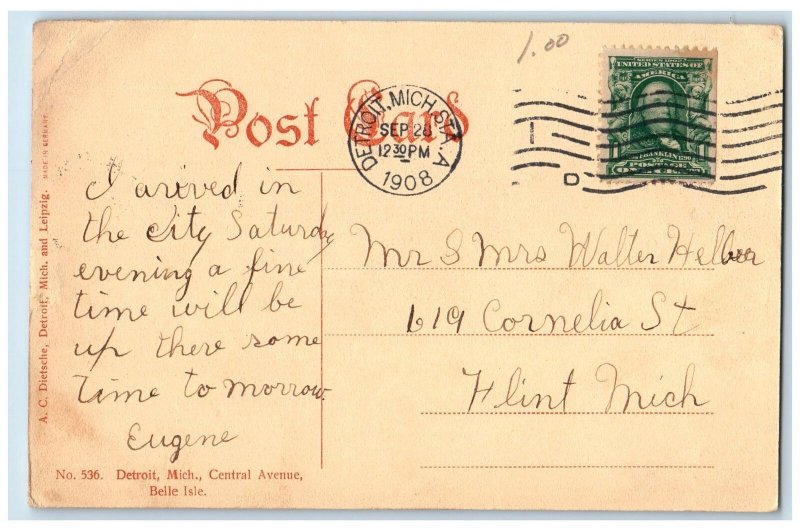 1.00
Post Card
SERIES 1902
UNITED STATES OF
AMERICA
FRANKLIN
POSTAGE
ONE CENT
DETROIT, MICH. STA. A
SEP 28
12 30 PM
1908
D
I arived in
the city Saturday
evening a fine
time will be
up there some
time to morrow.
Eugene
Mr & Mrs Walter
619 Cornelia St
Flint Mich
A. C. Dietsche, Detroit, Mich. and Leipzig. MADE IN GERMANY.
No. 536. Detroit, Mich., Central Avenue,
Belle Isle.